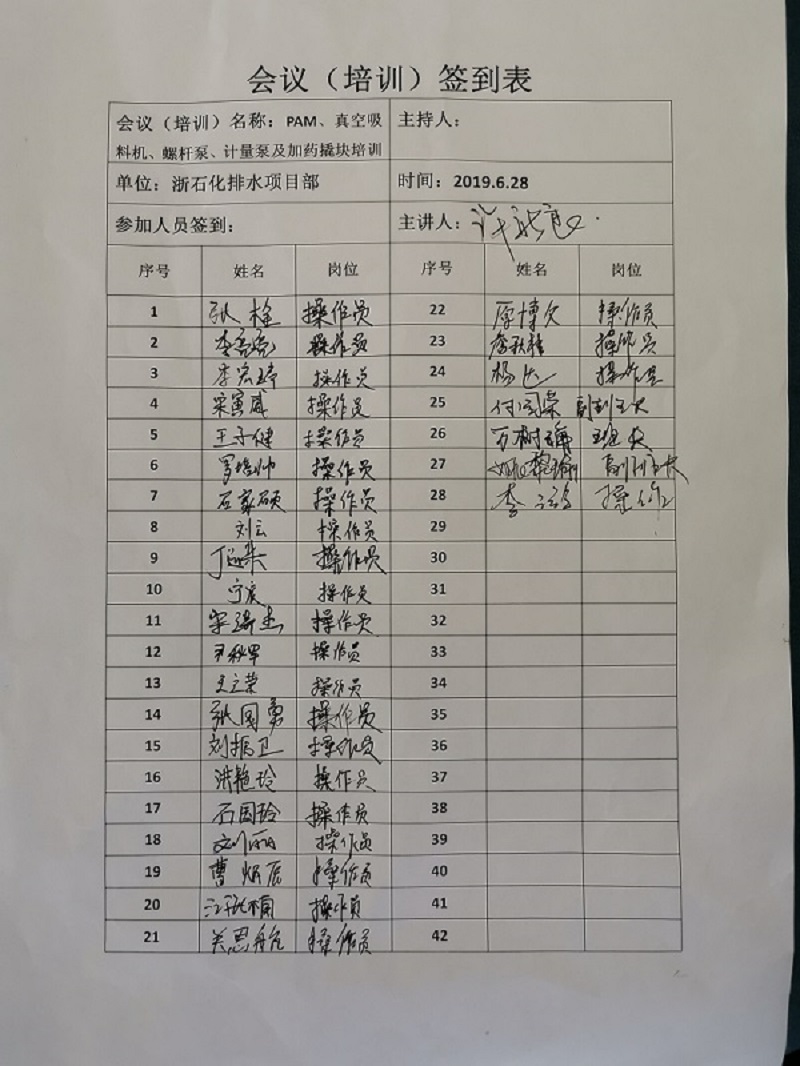 会议（培训）签到表
会议（培训）名称：PAM、真空吸 主持人：
料机、螺杆泵、计量泵及加药撬块培训
单位：浙石化排水项目部 时间：2019.6.28
参加人员签到： 主讲人：
序号 姓名 岗位 序号 姓名 岗位
1 张栓 操作员 22 原博文 操作员
2 李亮亮 操作员 23 操作员
3 李宏婷 操作员 24 杨达 操作员
4 宋寅威 操作员 25 付国荣 副班长
5 王子健 操作员 26 万树 班长
6 罗增帅 操作员 27 副班长
7 石家硕 操作员 28 李 操作
8 刘云 操作员 29
9 操作员 30
10 宁宸 操作员 31
11 宋琦杰 操作员 32
12 尹秋军 操作员 33
13 王立荣 操作员 34
14 张国勇 操作员 35
15 刘振卫 操作员 36
16 洪艳玲 操作员 37
17 石国玲 操作员 38
18 刘丽 操作员 39
19 曹炳辰 操作员 40
20 操作员 41
21 关思航 操作员 42